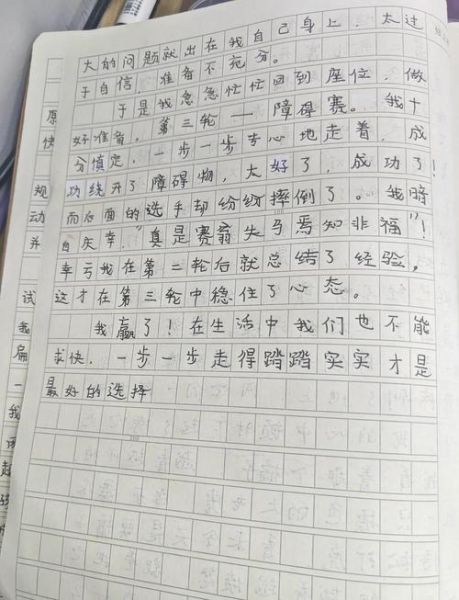 大的问题就出在我自己身上，太过
于自信，准备不充分。
于是我急急忙忙回到座位，做
好准备，第三轮——障碍赛。我十
分慎定，一步一步专心地走着，成
功绕开了障碍物，太好了，成功了！
而后面的选手却纷纷摔倒了。我暗
自庆幸，“真是赛翁失马焉知非福”！
幸亏我在第二轮后就总结了经验，
这才在第三轮中稳住了心态。
我赢了！在生活中我们也不能
求快，一步一步走得踏踏实实才是
最好的选择
原
快
规
动
并
试
我
扁
一
我